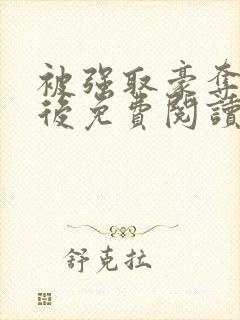 被強取豪奪
後免費閱讀
舒克拉